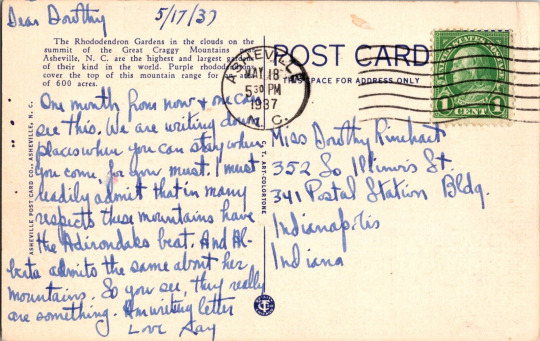 Dear Dorothy 5/17/37
The Rhododendron Gardens in the clouds on the
summit of the Great Craggy Mountains near
Asheville, N. C. are the highest and largest gardens
of their kind in the world. Purple rhododendrons
cover the top of this mountain range for an area
of 600 acres.
One month from now & one can
see this. We are writing down
places where you can stay when
you come, for you must. I must
readily admit that in many
respects these mountains have
the Adirondaks beat. And Al-
berta admits the same about her
mountains. So you see, they really
are something. Am writing letter
Love
ASHEVILLE POST CARD CO., ASHEVILLE, N. C.
C. T. ART-COLORTONE
POST CARD
THIS SPACE FOR ADDRESS ONLY
ASHEVILLE
MAY 18
5 30 PM
1937
N. C.
UNITED STATES POSTAGE
1 1
CENT
Miss Dorothy Rinehart
352 So Illinois St.
341 Postal Station Bldg.
Indianapolis
Indiana